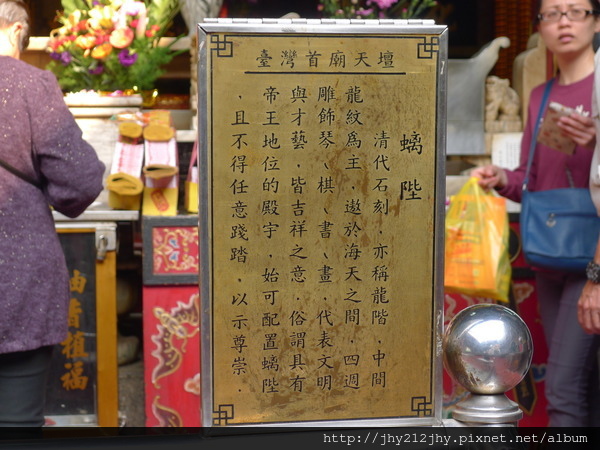 臺灣首廟天壇
螭陛
清代石刻．亦稱龍階．中間
龍紋為主．遨於海天之間．四週
雕飾琴、棋、書、畫．代表文明
與才藝．皆吉祥之意．俗謂具有
帝王地位的殿宇．始可配置螭陛
．且不得任意踐踏．以示尊崇．
油香植福
http://jhy212jhy.pixnet.net/album